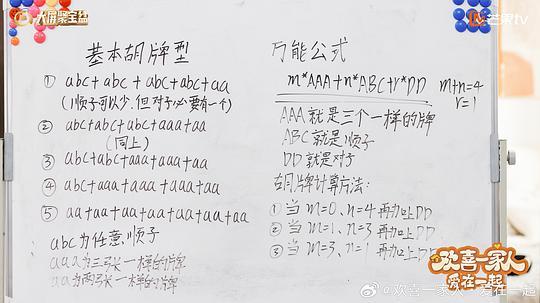 大屏聚宝盆
芒果tv
基本胡牌型
① abc+abc+abc+abc+aa
(顺子可以少,但对子必要有一个)
② abc+abc+abc+aaa+aa
(同上)
③ abc+abc+aaa+aaa+aa
④ abc+aaa+aaa+aaa+aa
⑤ aa+aa+aa+aa+aa+aa+aa
abc为任意顺子
aaa为三张一样的牌
aa为两张一样的牌
万能公式
m*AAA+n*ABC+r*DD
m+n=4
r=1
AAA就是三个一样的牌
ABC就是顺子
DD就是对子
胡牌计算方法:
① 当m=0、n=4再加上DD
② 当m=1、n=3再加上DD
③ 当m=3、n=1再加上DD
欢喜一家人
爱在一起